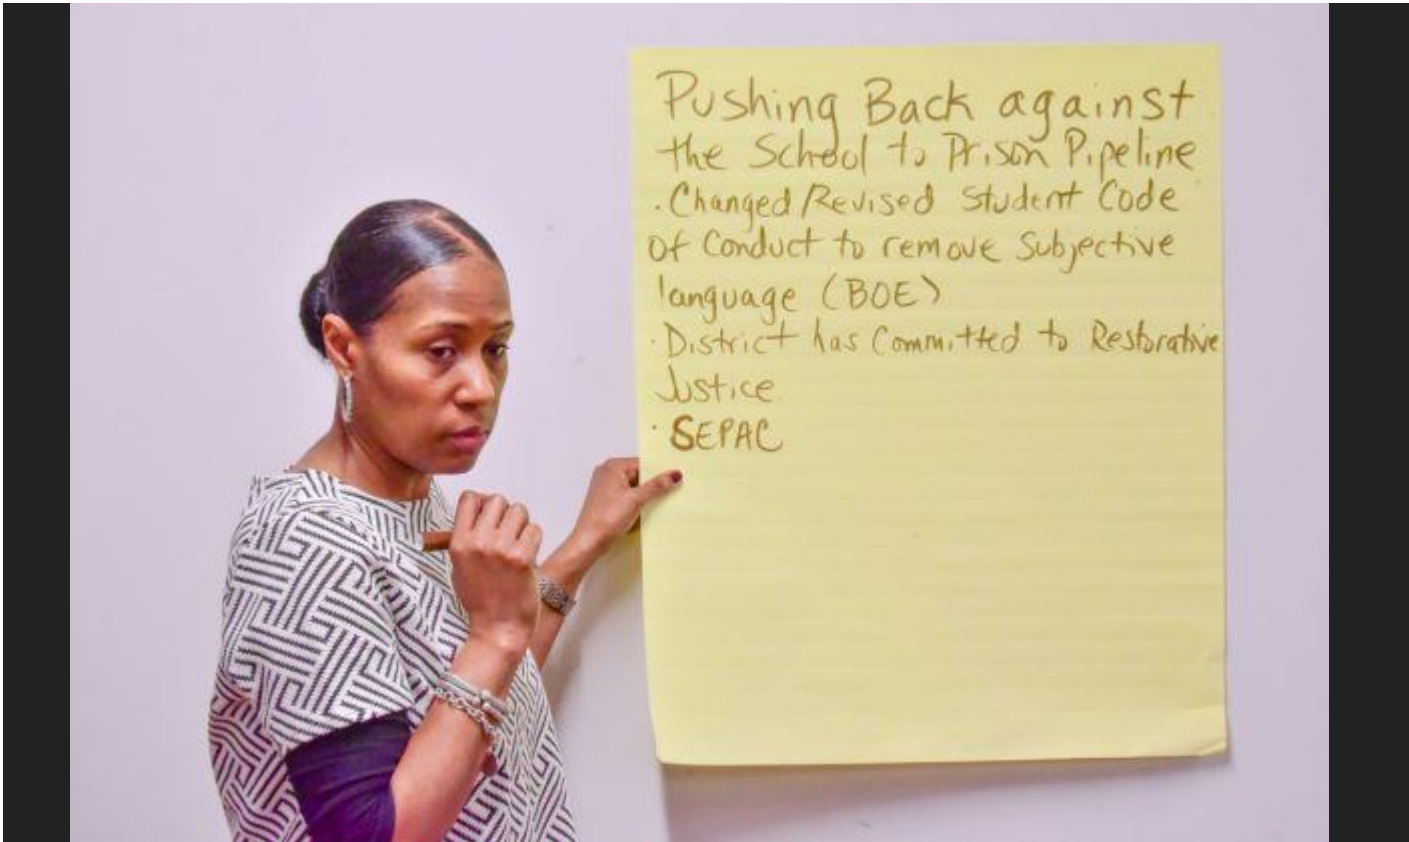 Pushing Back against
the School to Prison Pipeline
· Changed/Revised Student Code
of Conduct to remove Subjective
language (BOE)
· District has Committed to Restorative
Justice
· SEPAC